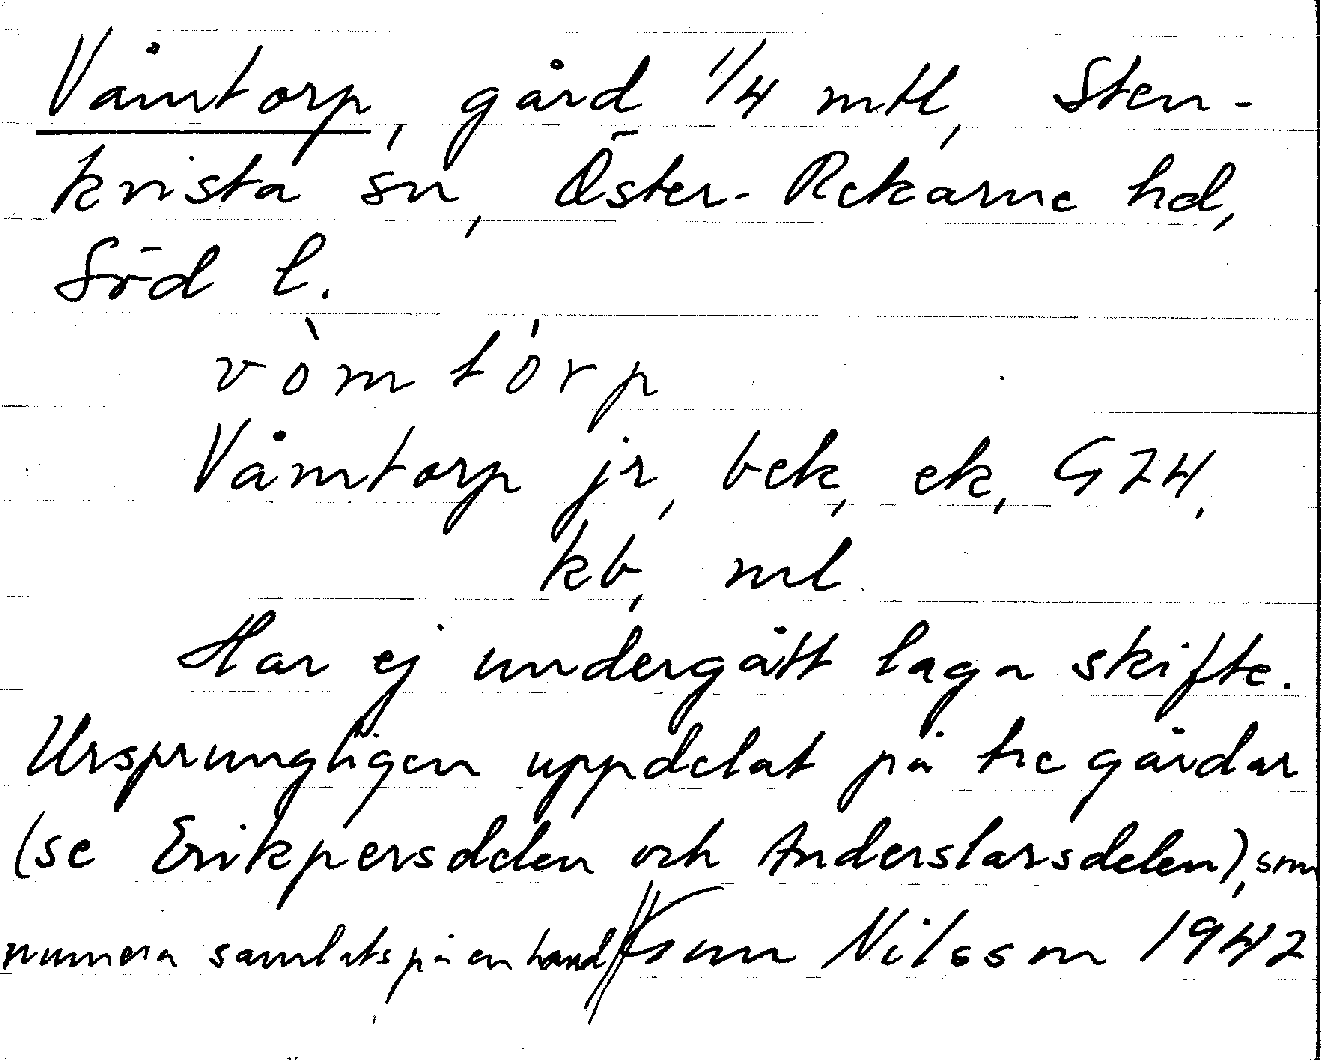 Våmtorp, gård 1/4 mtl, Sten-
kvista sn, Öster-Rekarne hd,
Söd l.
vòmtórp
Våmtorp jr, bek, ek, G24,
kb, ml
Har ej undergått laga skifte.
Ursprungligen uppdelat på tre gårdar
(se Erikpersdelen och Anderslarsdelen), som
numera samlats på en hand // Gun Nilsson 1942